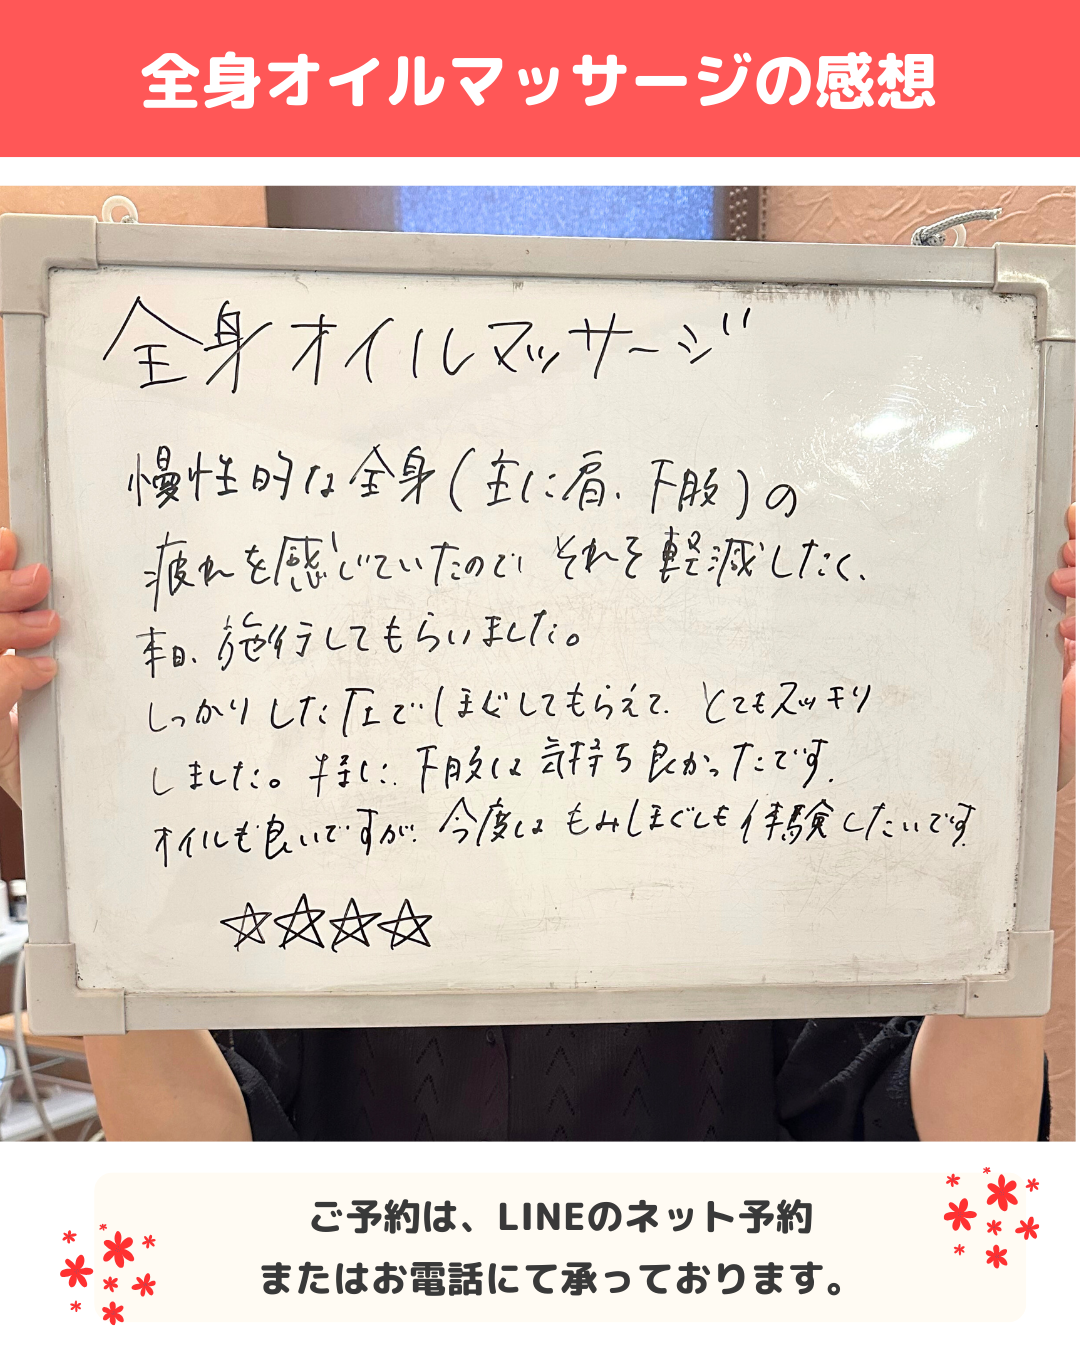 全身オイルマッサージの感想
全身オイルマッサージ
慢性的な全身(主に肩、下肢)の
疲れを感じていたので、それを軽減したく、
本日、施術してもらいました。
しっかりした圧でほぐしてもらえて、とてもスッキリ
しました。特に、下肢は気持ち良かったです。
オイルも良いですが、今度はもみほぐしも体験したいです。
☆☆☆☆
ご予約は、LINEのネット予約
またはお電話にて承っております。